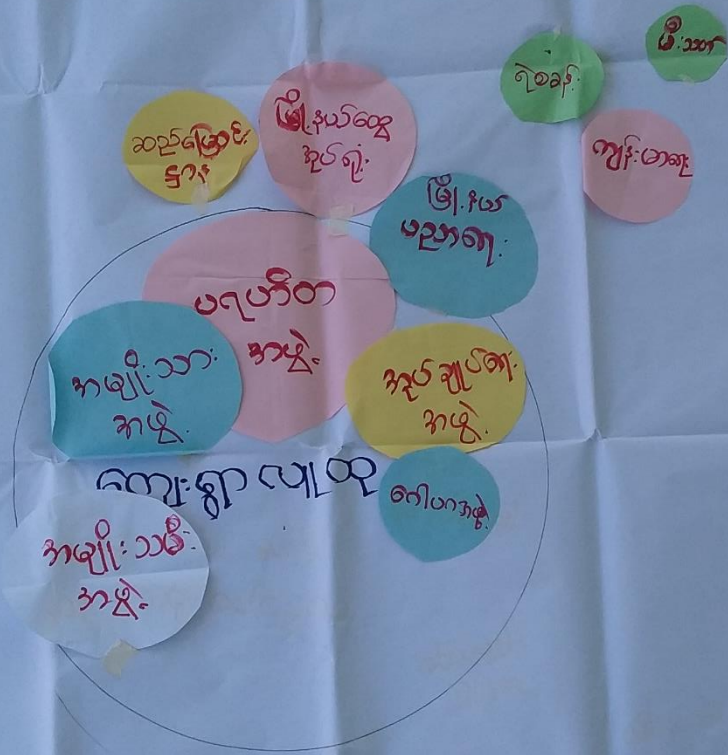 မီးသတ်
ရဲစခန်း
ဆည်မြောင်း
ဌာန
မြို့နယ်ထွေ
အုပ်ရုံး
ကျန်းမာရေး
မြို့နယ်
ပညာရေး
ပရဟိတ
အဖွဲ့
အမျိုးသား
အဖွဲ့
အုပ်ချုပ်ရေး
အဖွဲ့
ကျေးရွာလူထု
ဂေါပကအဖွဲ့
အမျိုးသမီး
အဖွဲ့